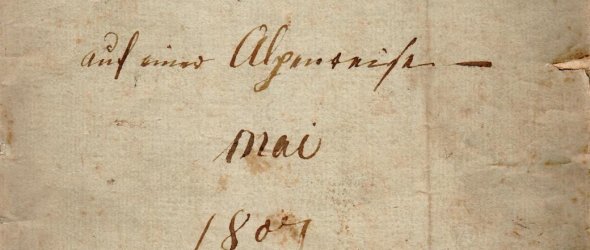 auf einer Alpenreise —
Mai